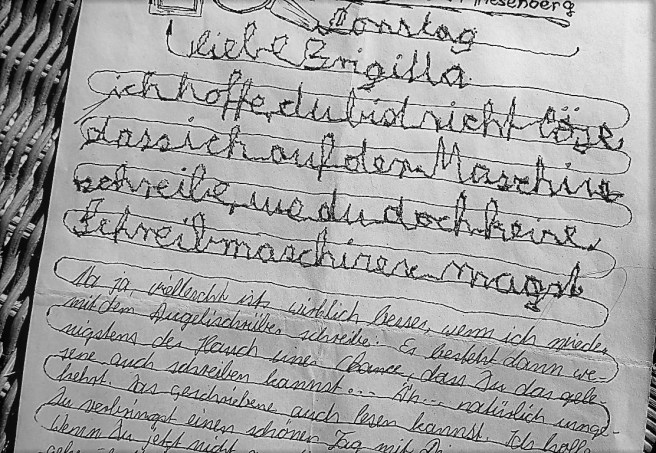 Riesenberg
Sonntag
Liebe Brigitta
ich hoffe, du bist nicht böse
dass ich auf der Maschine
schreibe, wo du doch keine
Schreibmaschinen magst
Na ja, vielleicht ist's wirklich besser, wenn ich wieder
mit dem Kugelschreiber schreibe. Es besteht dann we-
nigstens der Hauch einer Chance, dass Du das gele-
sene auch schreiben kannst... Äh... natürlich umge-
kehrt. Das geschriebene auch lesen kannst. Ich hoffe
Du verbringst einen schönen Tag mit
Wenn Du jetzt nicht